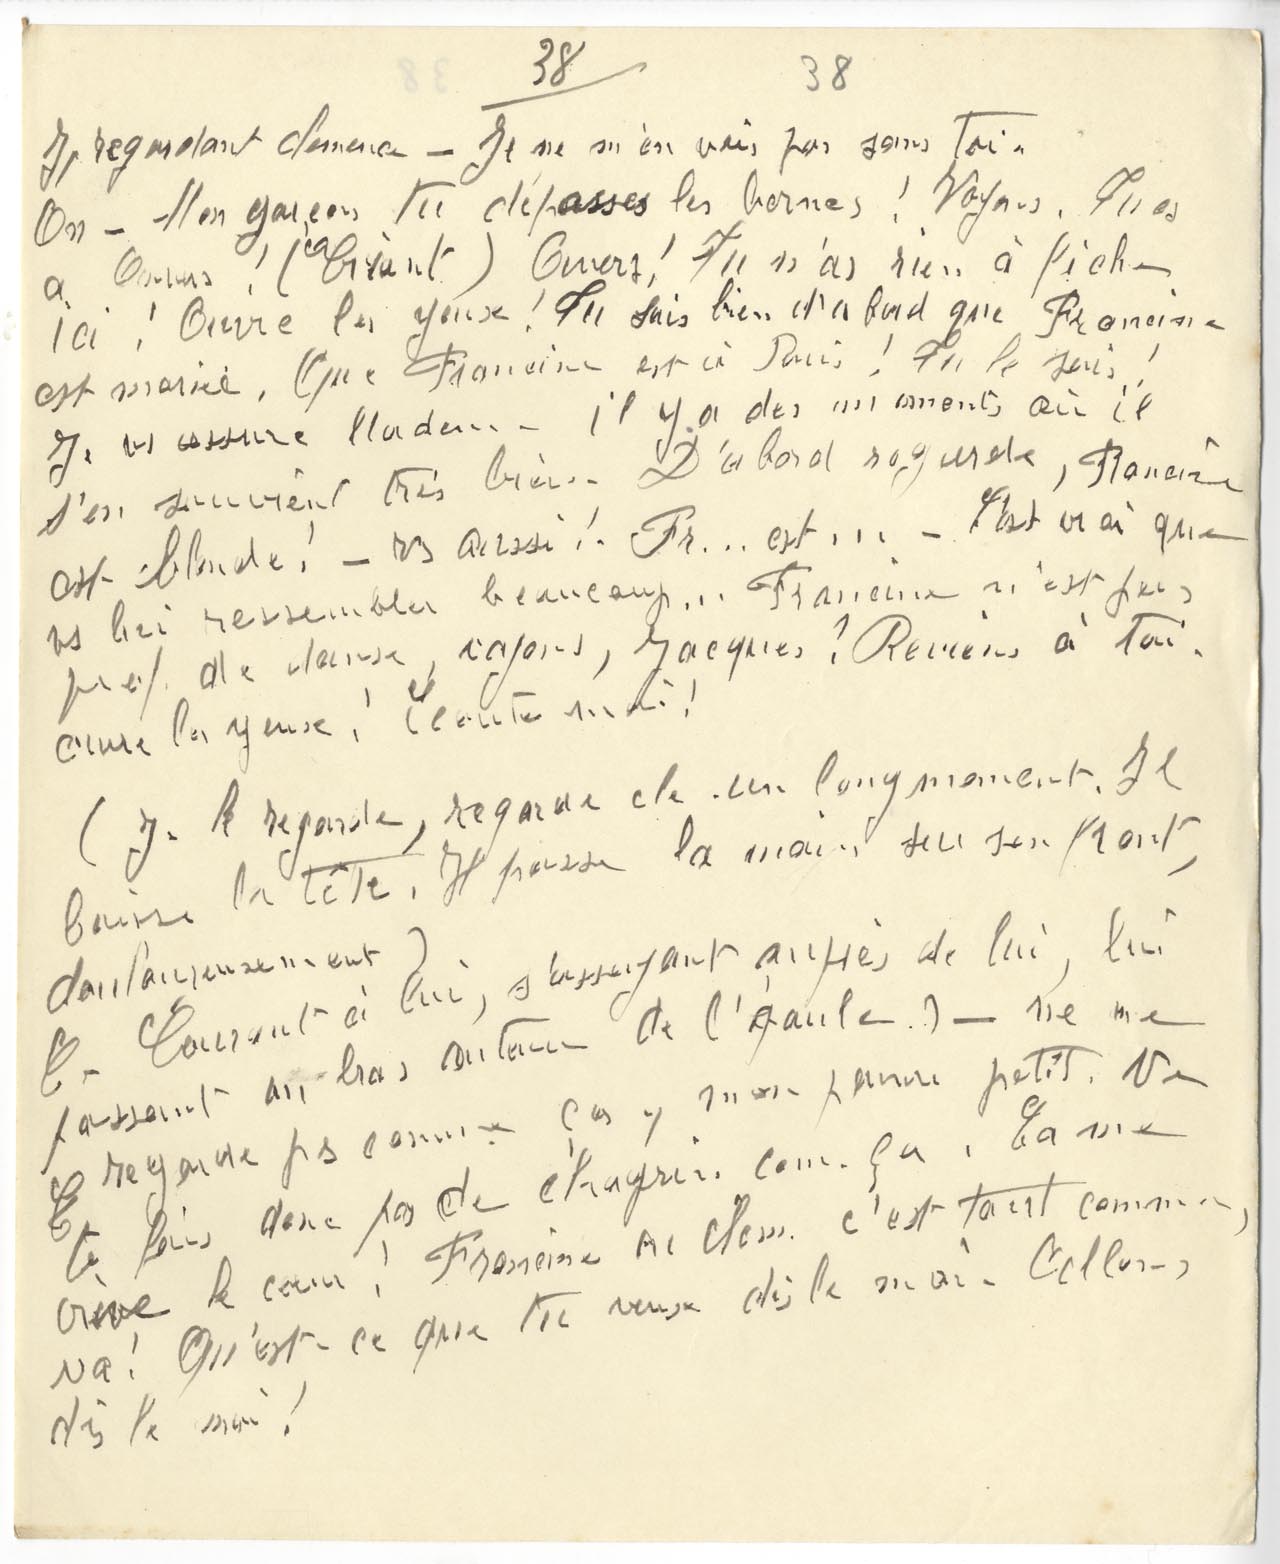 38 38
J, regardant clemence - Je ne m'en vais pas sans toi.
On - Mon garçon tu dépasses les bornes! Voyons. Tu es
a Anvers! (Criant) Anvers! Tu n'as rien à fiche
ici! Ouvre les yeux! Tu sais bien d'abord que Francine
est mariée. Que Francine est à Paris! Tu le sais!
Je vs assure Madem. - il y a des moments où il
s'en souvient très bien. D'abord regarde, Francine
est blonde! - vs aussi! Fr... est... - C'est vrai que
vs lui ressemblez beaucoup... Francine n'est pas
prof. de danse, voyons, Jacques! Reviens à toi.
ouvre les yeux! Écoute moi!
(J. le regarde, regarde cle. un long moment. Il
baisse la tête. Il passe la main sur son front,
douloureusement)
C - Courant à lui, s'asseyant auprès de lui, lui
passant un bras autour de l'épaule.) - ne me
regarde pas comme ça, mon pauvre petit. Ne
te fais donc pas de chagrin com. ça. Ça me
crève le cœur! Francine ou Clem. c'est tout comme,
va! Qu'est-ce que tu veux dis le moi. Allons
dis le moi!